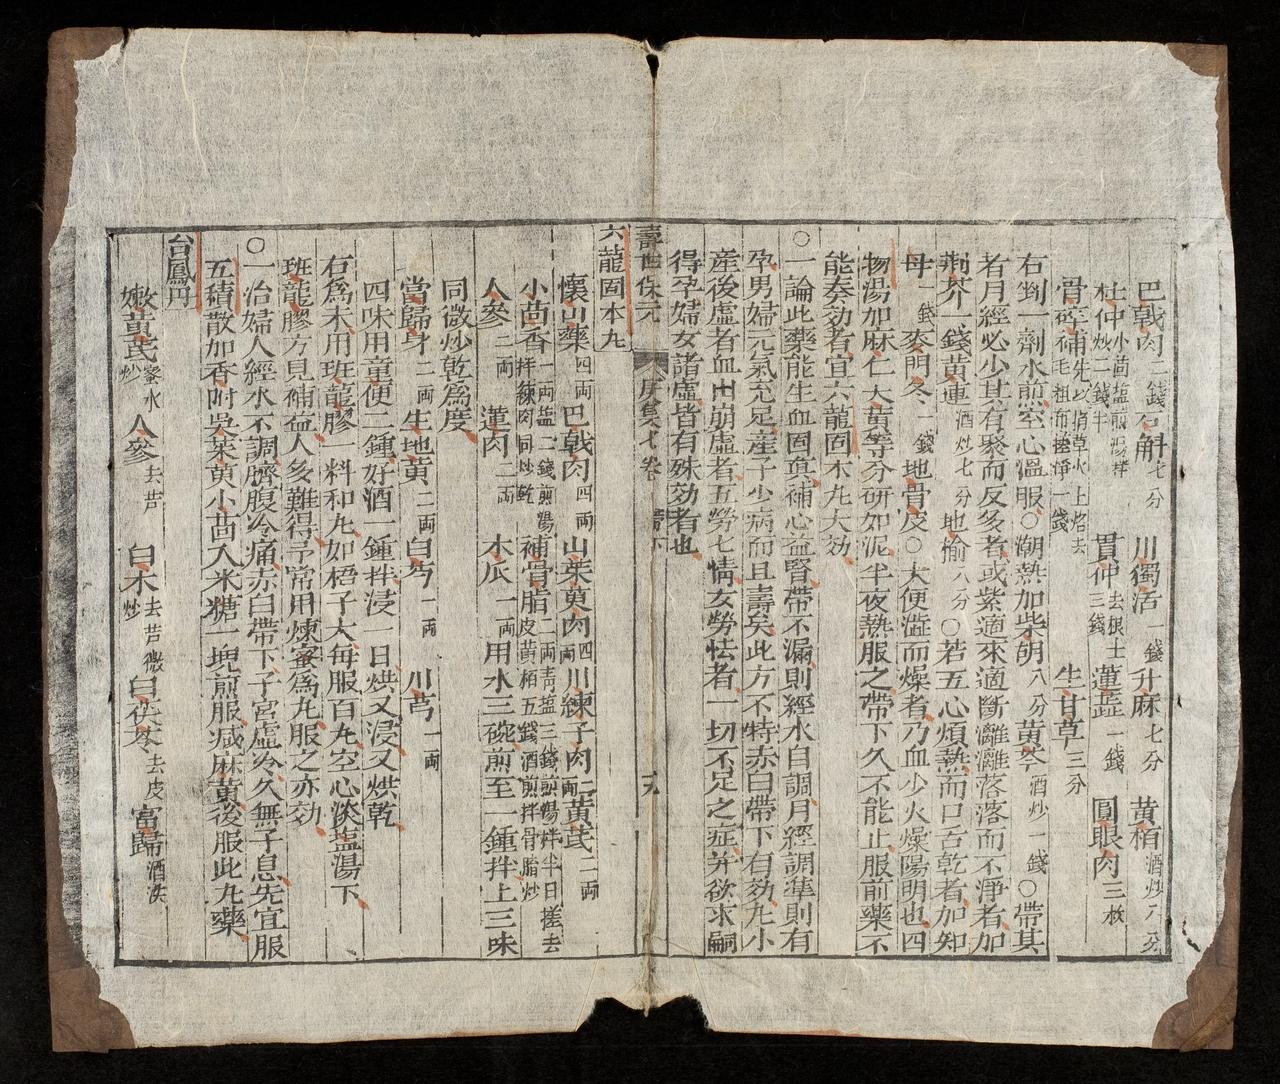 巴戟肉二錢 石斛七分 川獨活一錢 升麻七分 黃栢酒炒八分
杜仲小茴塩煎湯拌炒二錢半 貫仲去根土三錢 薑蚕一錢 圓眼肉三枚
骨碎補先以稍草火上烙去毛粗布擦淨一錢 生甘草三分
右剉一劑水煎空心溫服○潮熱加柴胡八分黃芩酒炒一錢○帶其
者月經必少其有聚而反多者或紫適來適斷灕灕落落而不淨者加
荊芥一錢黃連酒炒七分地榆八分○若五心煩熱而口舌乾者加知
母一錢麥門冬一錢地骨皮○大便澁而燥者乃血少火燥陽明也四
物湯加麻仁大黃等分研如泥半夜熱服之帶下久不能止服前藥不
能奏効者宜六龍固本丸大効
○一論此藥能生血固真補心益腎帶不漏則經水自調月經調準則有
孕男婦元氣充足產子少病而且壽矣此方不特赤白帶下有効凡小
產後虛者血山崩虛者五勞七情女勞怯者一切不足之症并欲求嗣
得孕婦女諸虛皆有殊効者也
壽世保元 庚集七卷 帶下 十九
六龍固本丸
懷山藥四両 巴戟肉四両 山茱萸肉四両 川練子肉二両 黃芪二両
小茴香一両塩二錢煎湯拌練肉同炒乾 補骨脂二両青塩三錢煎湯拌半日搓去皮黃栢五錢酒煎拌骨脂炒
人參二両 蓮肉二両 木瓜一両用水三碗煎至一鍾拌上三味
同微炒乾為度
當歸身二両 生地黃二両 白芍一両 川芎一両
四味用童便二鍾好酒一鍾拌浸一日烘又浸又烘乾
右為末用班龍膠一料和丸如梧子大每服百丸空心淡塩湯下
班龍膠方見補益人多難得予常用煉蜜為丸服之亦効
○一治婦人經水不調臍腹冷痛赤白帶下子宮虛冷久無子息先宜服
五積散加香附吳茱萸小茴入米糖一塊煎服減麻黃後服此丸藥
台鳳丹
嫩黃芪蜜水炒 人參去芦 白朮去芦微炒 白茯苓去皮 當歸酒洗